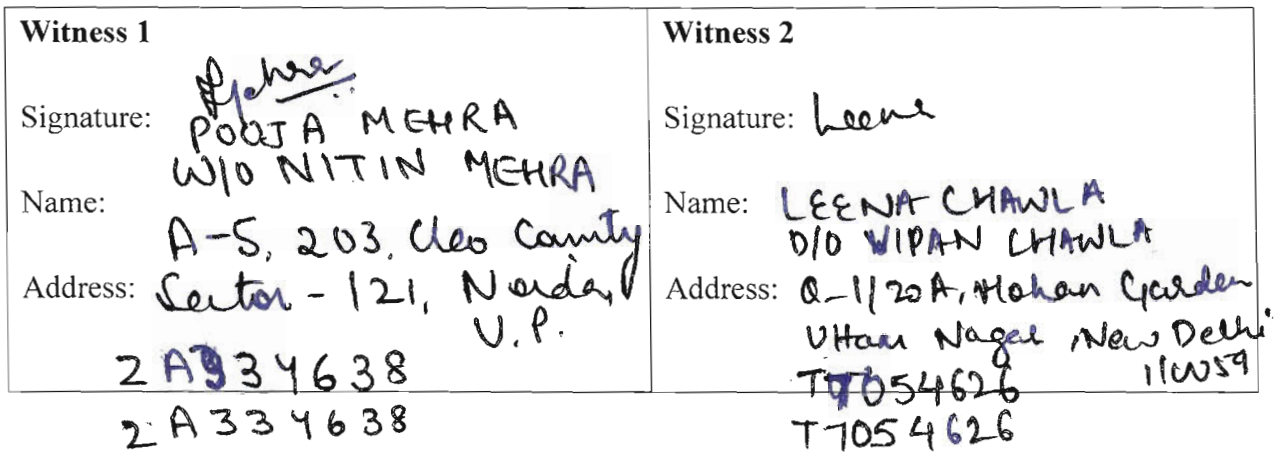 Witness 1
Signature:
POOJA MEHRA
W/O NITIN MEHRA
Name:
A-5, 203, Cleo County
Address: Sector - 121, Noida,
U.P.
2A334638
2A334638
Witness 2
Signature: Leena
Name: LEENA CHAWLA
D/O VIPAN CHAWLA
Address: Q-1/20A, Mohan Garden
Uttam Nagar, New Delhi
110059
T7054626
T7054626